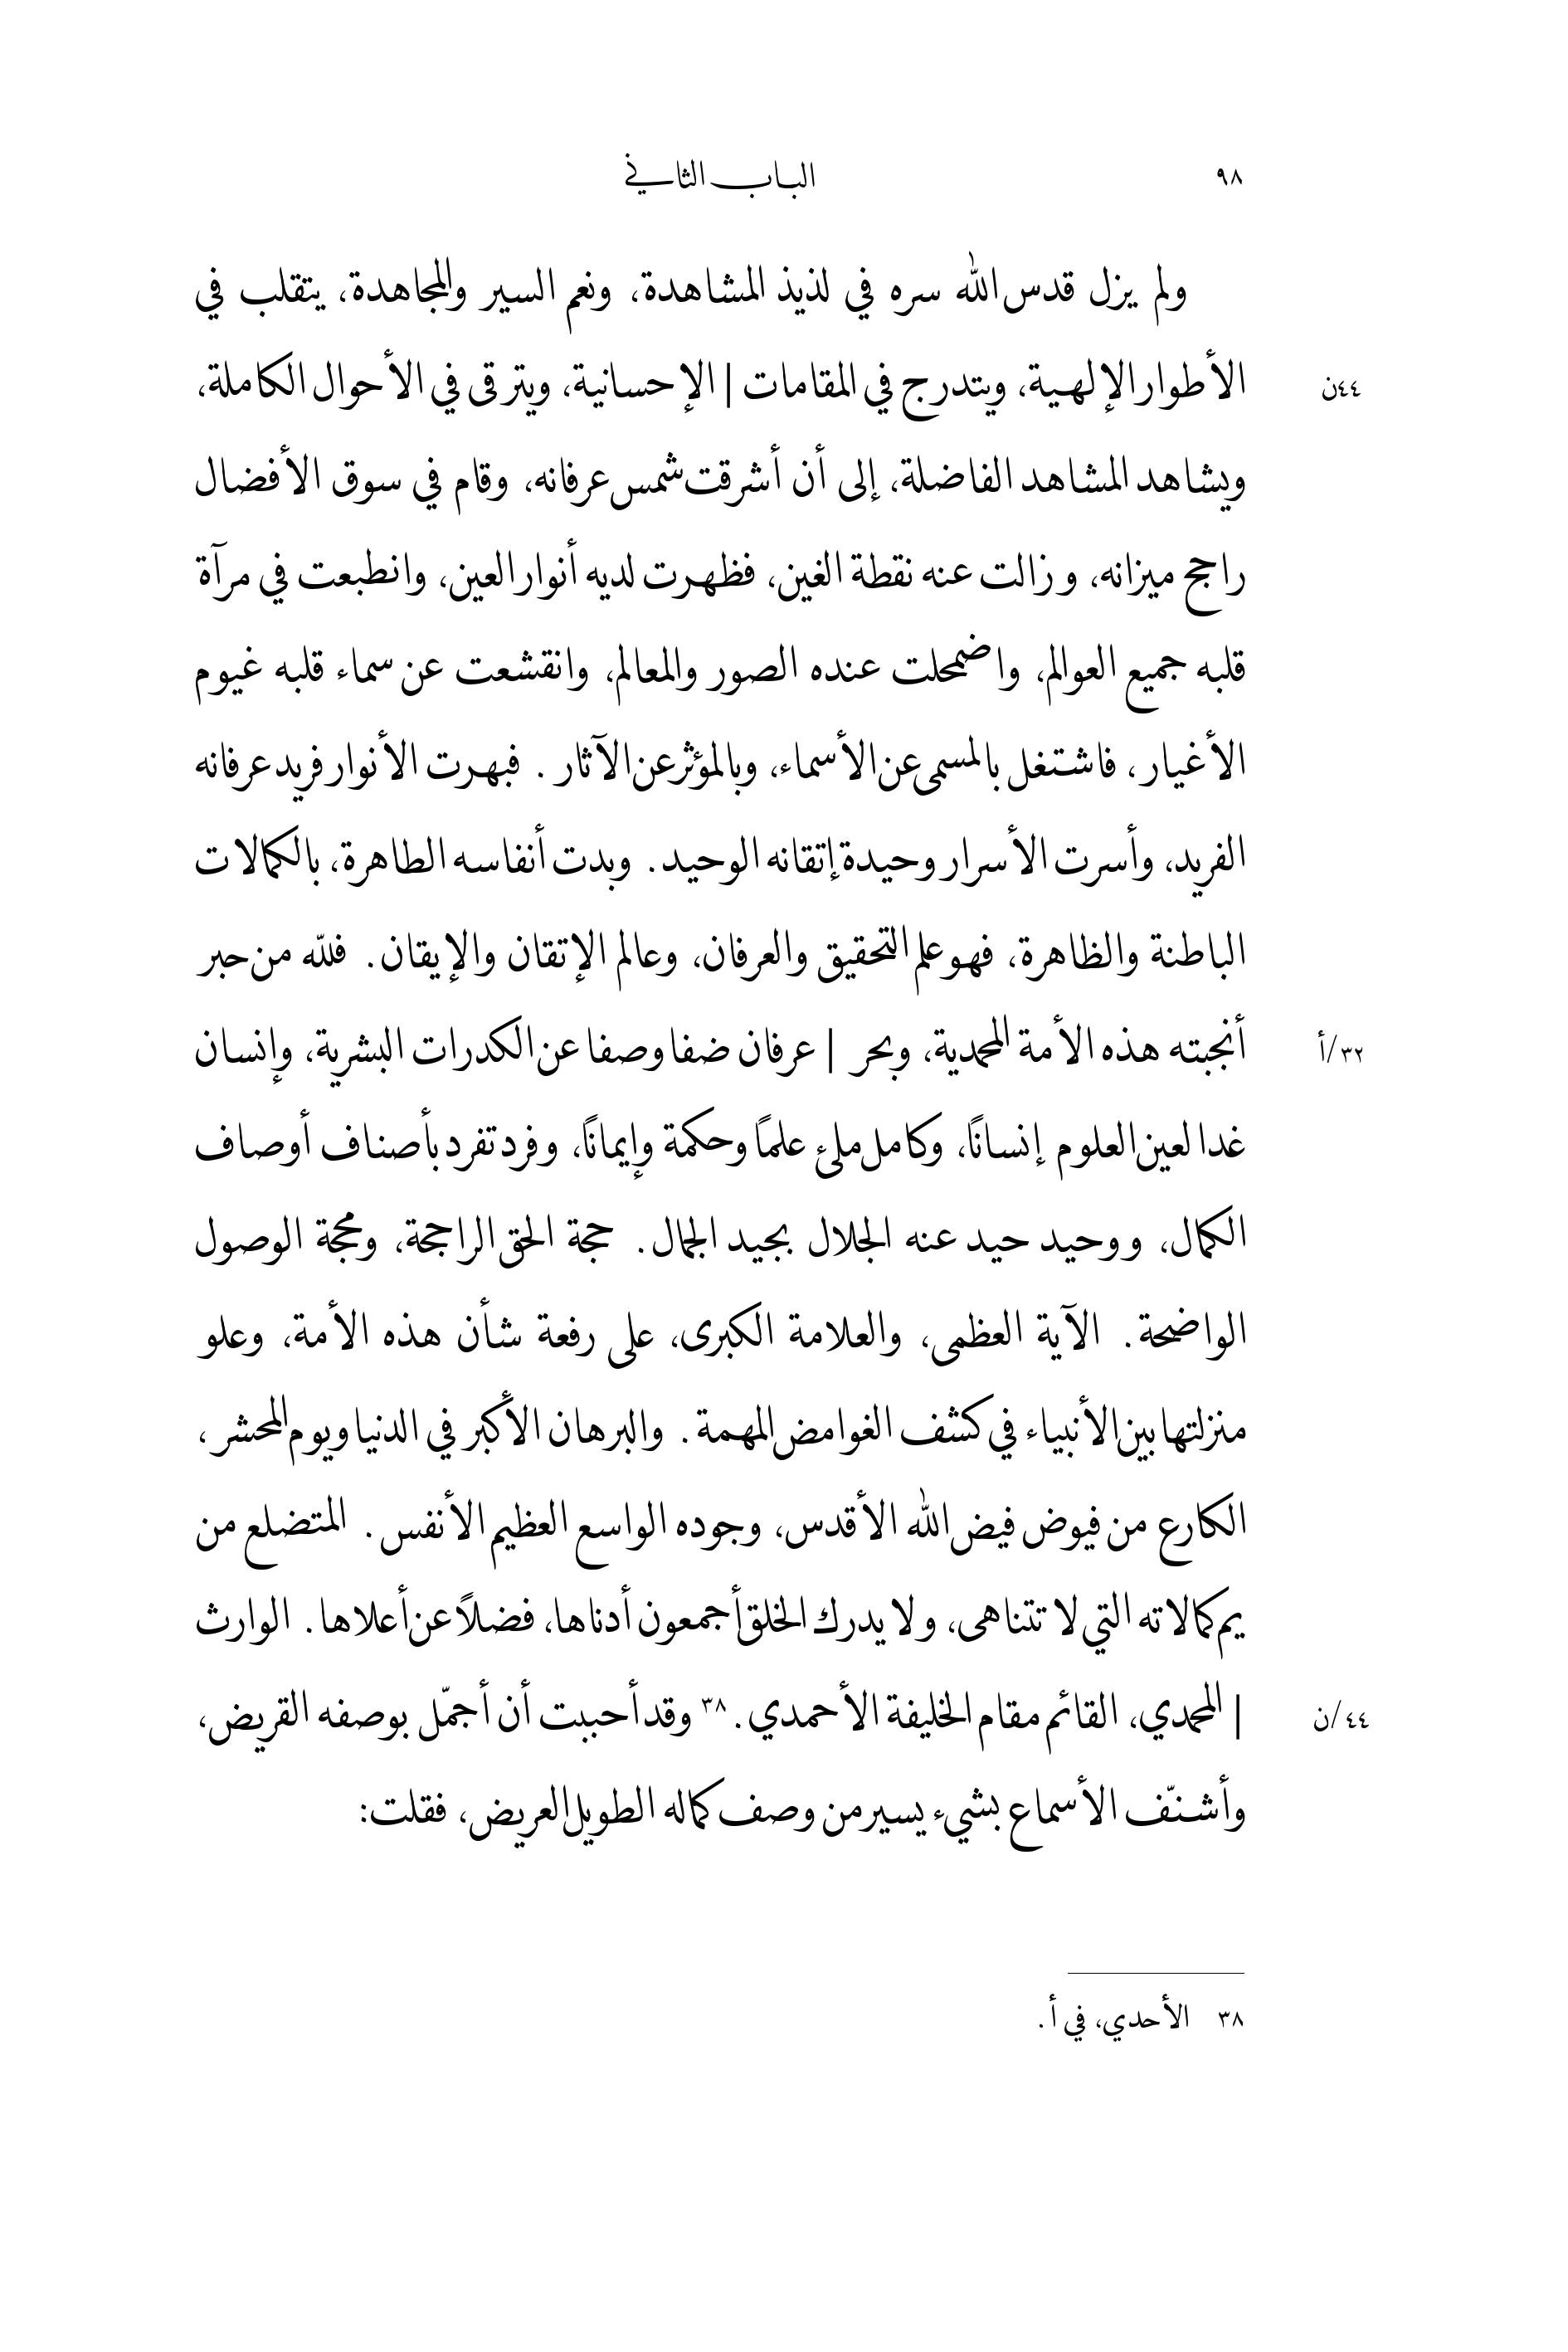 ٩٨ الباب الثاني
ولم يزل قدس الله سره في لذيذ المشاهدة، ونعم السير والمجاهدة، يتقلب في
٤٤ن الأطوار الإلهية، ويتدرج في المقامات | الإحسانية، ويترقى في الأحوال الكاملة،
ويشاهد المشاهد الفاضلة، إلى أن أشرقت شمس عرفانه، وقام في سوق الأفضال
راجح ميزانه، وزالت عنه نقطة الغين، فظهرت لديه أنوار العين، وانطبعت في مرآة
قلبه جميع العوالم، واضمحلت عنده الصور والمعالم، وانقشعت عن سماء قلبه غيوم
الأغيار، فاشتغل بالمسمى عن الأسماء، وبالمؤثر عن الآثار. فبهرت الأنوار فريد عرفانه
الفريد، وأسرت الأسرار وحيدة إتقانه الوحيد. وبدت أنفاسه الطاهرة، بالكمالات
الباطنة والظاهرة، فهو علم التحقيق والعرفان، وعالم الإتقان والإيقان. فللّه من حبر
٣٢/أ أنجبته هذه الأمة المحمدية، وبحر | عرفان ضفا وصفا عن الكدرات البشرية، وإنسان
غدا لعين العلوم إنسانًا، وكامل ملئ علمًا وحكمة وإيمانًا، وفرد تفرد بأصناف أوصاف
الكمال، ووحيد حيد عنه الجلال بجيد الجمال. حجة الحق الراجحة، ومحجة الوصول
الواضحة. الآية العظمى، والعلامة الكبرى، على رفعة شأن هذه الأمة، وعلو
منزلتها بين الأنبياء في كشف الغوامض المهمة. والبرهان الأكبر في الدنيا ويوم المحشر،
الكارع من فيوض فيض الله الأقدس، وجوده الواسع العظيم الأنفس. المتضلع من
يم كمالاته التي لا تتناهى، ولا يدرك الخلق أجمعون أدناها، فضلاً عن أعلاها. الوارث
٤٤/ن | المحمدي، القائم مقام الخليفة الأحمدي.٣٨ وقد أحببت أن أجمّل بوصفه القريض،
وأشنّف الأسماع بشيء يسير من وصف كماله الطويل العريض، فقلت:
٣٨ الأحدي، في أ.